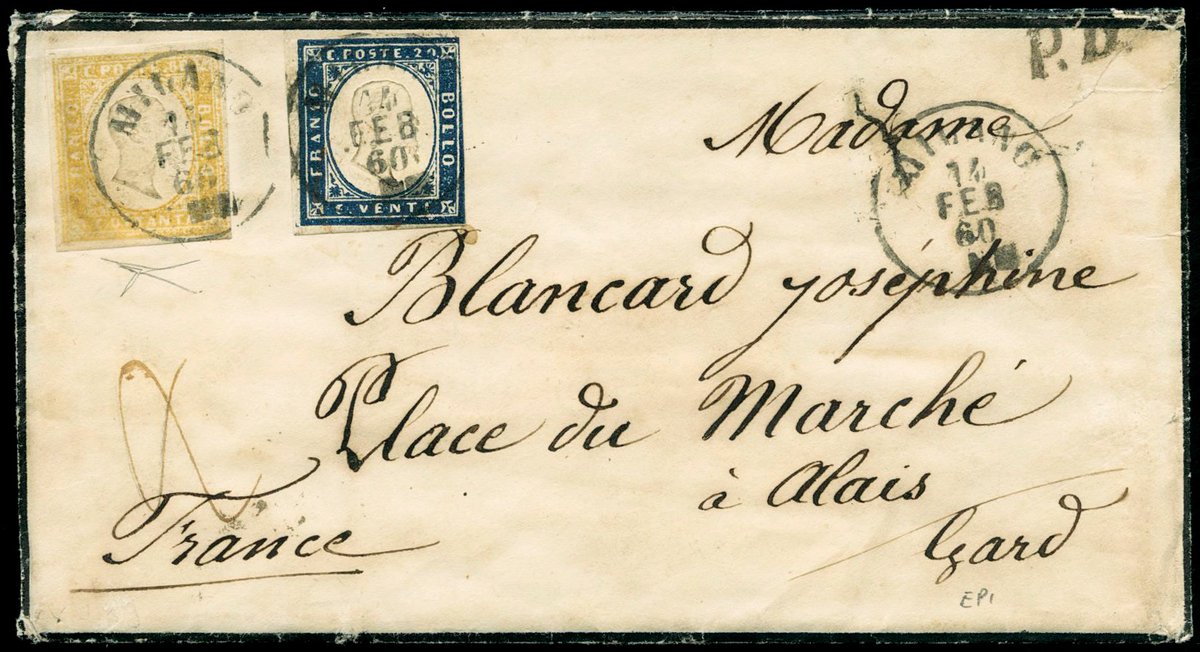 C. POSTE 80
FRANCO
BOLLO
C. POSTE 20
FRANCO
BOLLO
C. VENTI
MILANO
14
FEB
60
P.D.
MILANO
14
FEB
60
Madame
Blancard joséphine
Place du Marché
à Alais
Gard
France
EPI